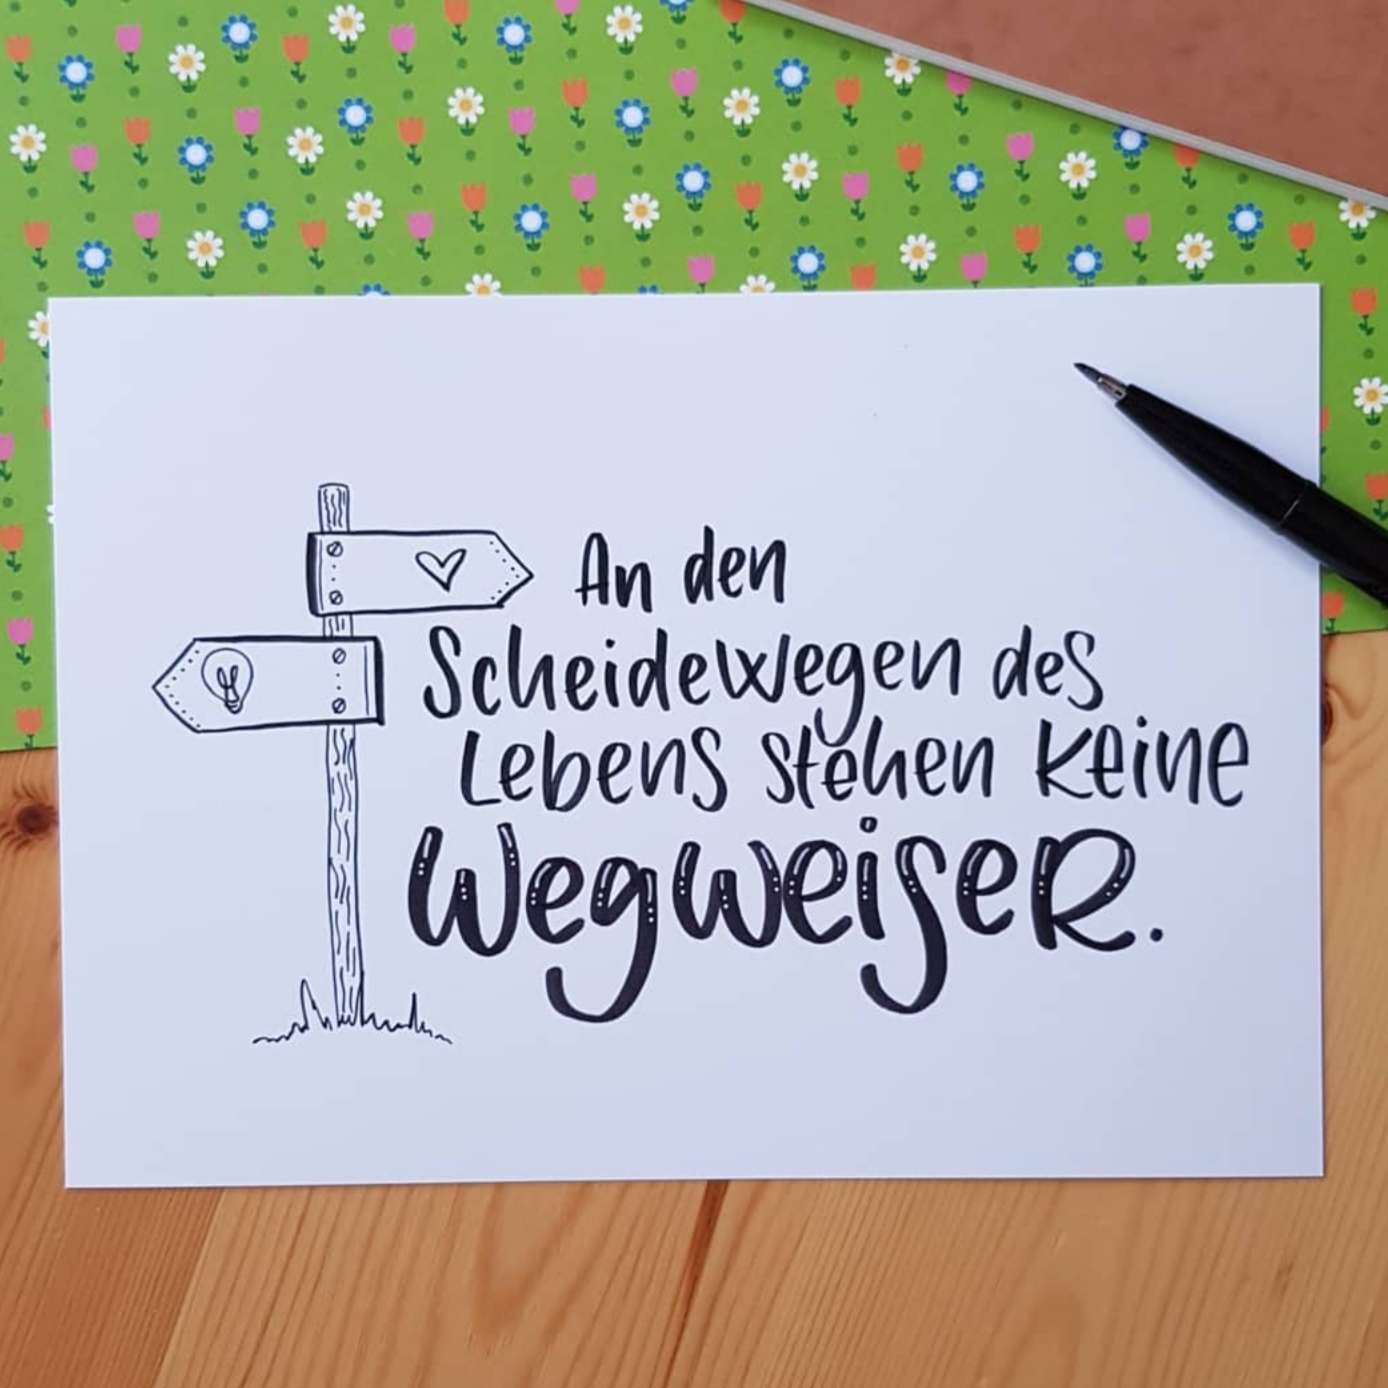 An den
Scheidewegen des
Lebens stehen keine
Wegweiser.